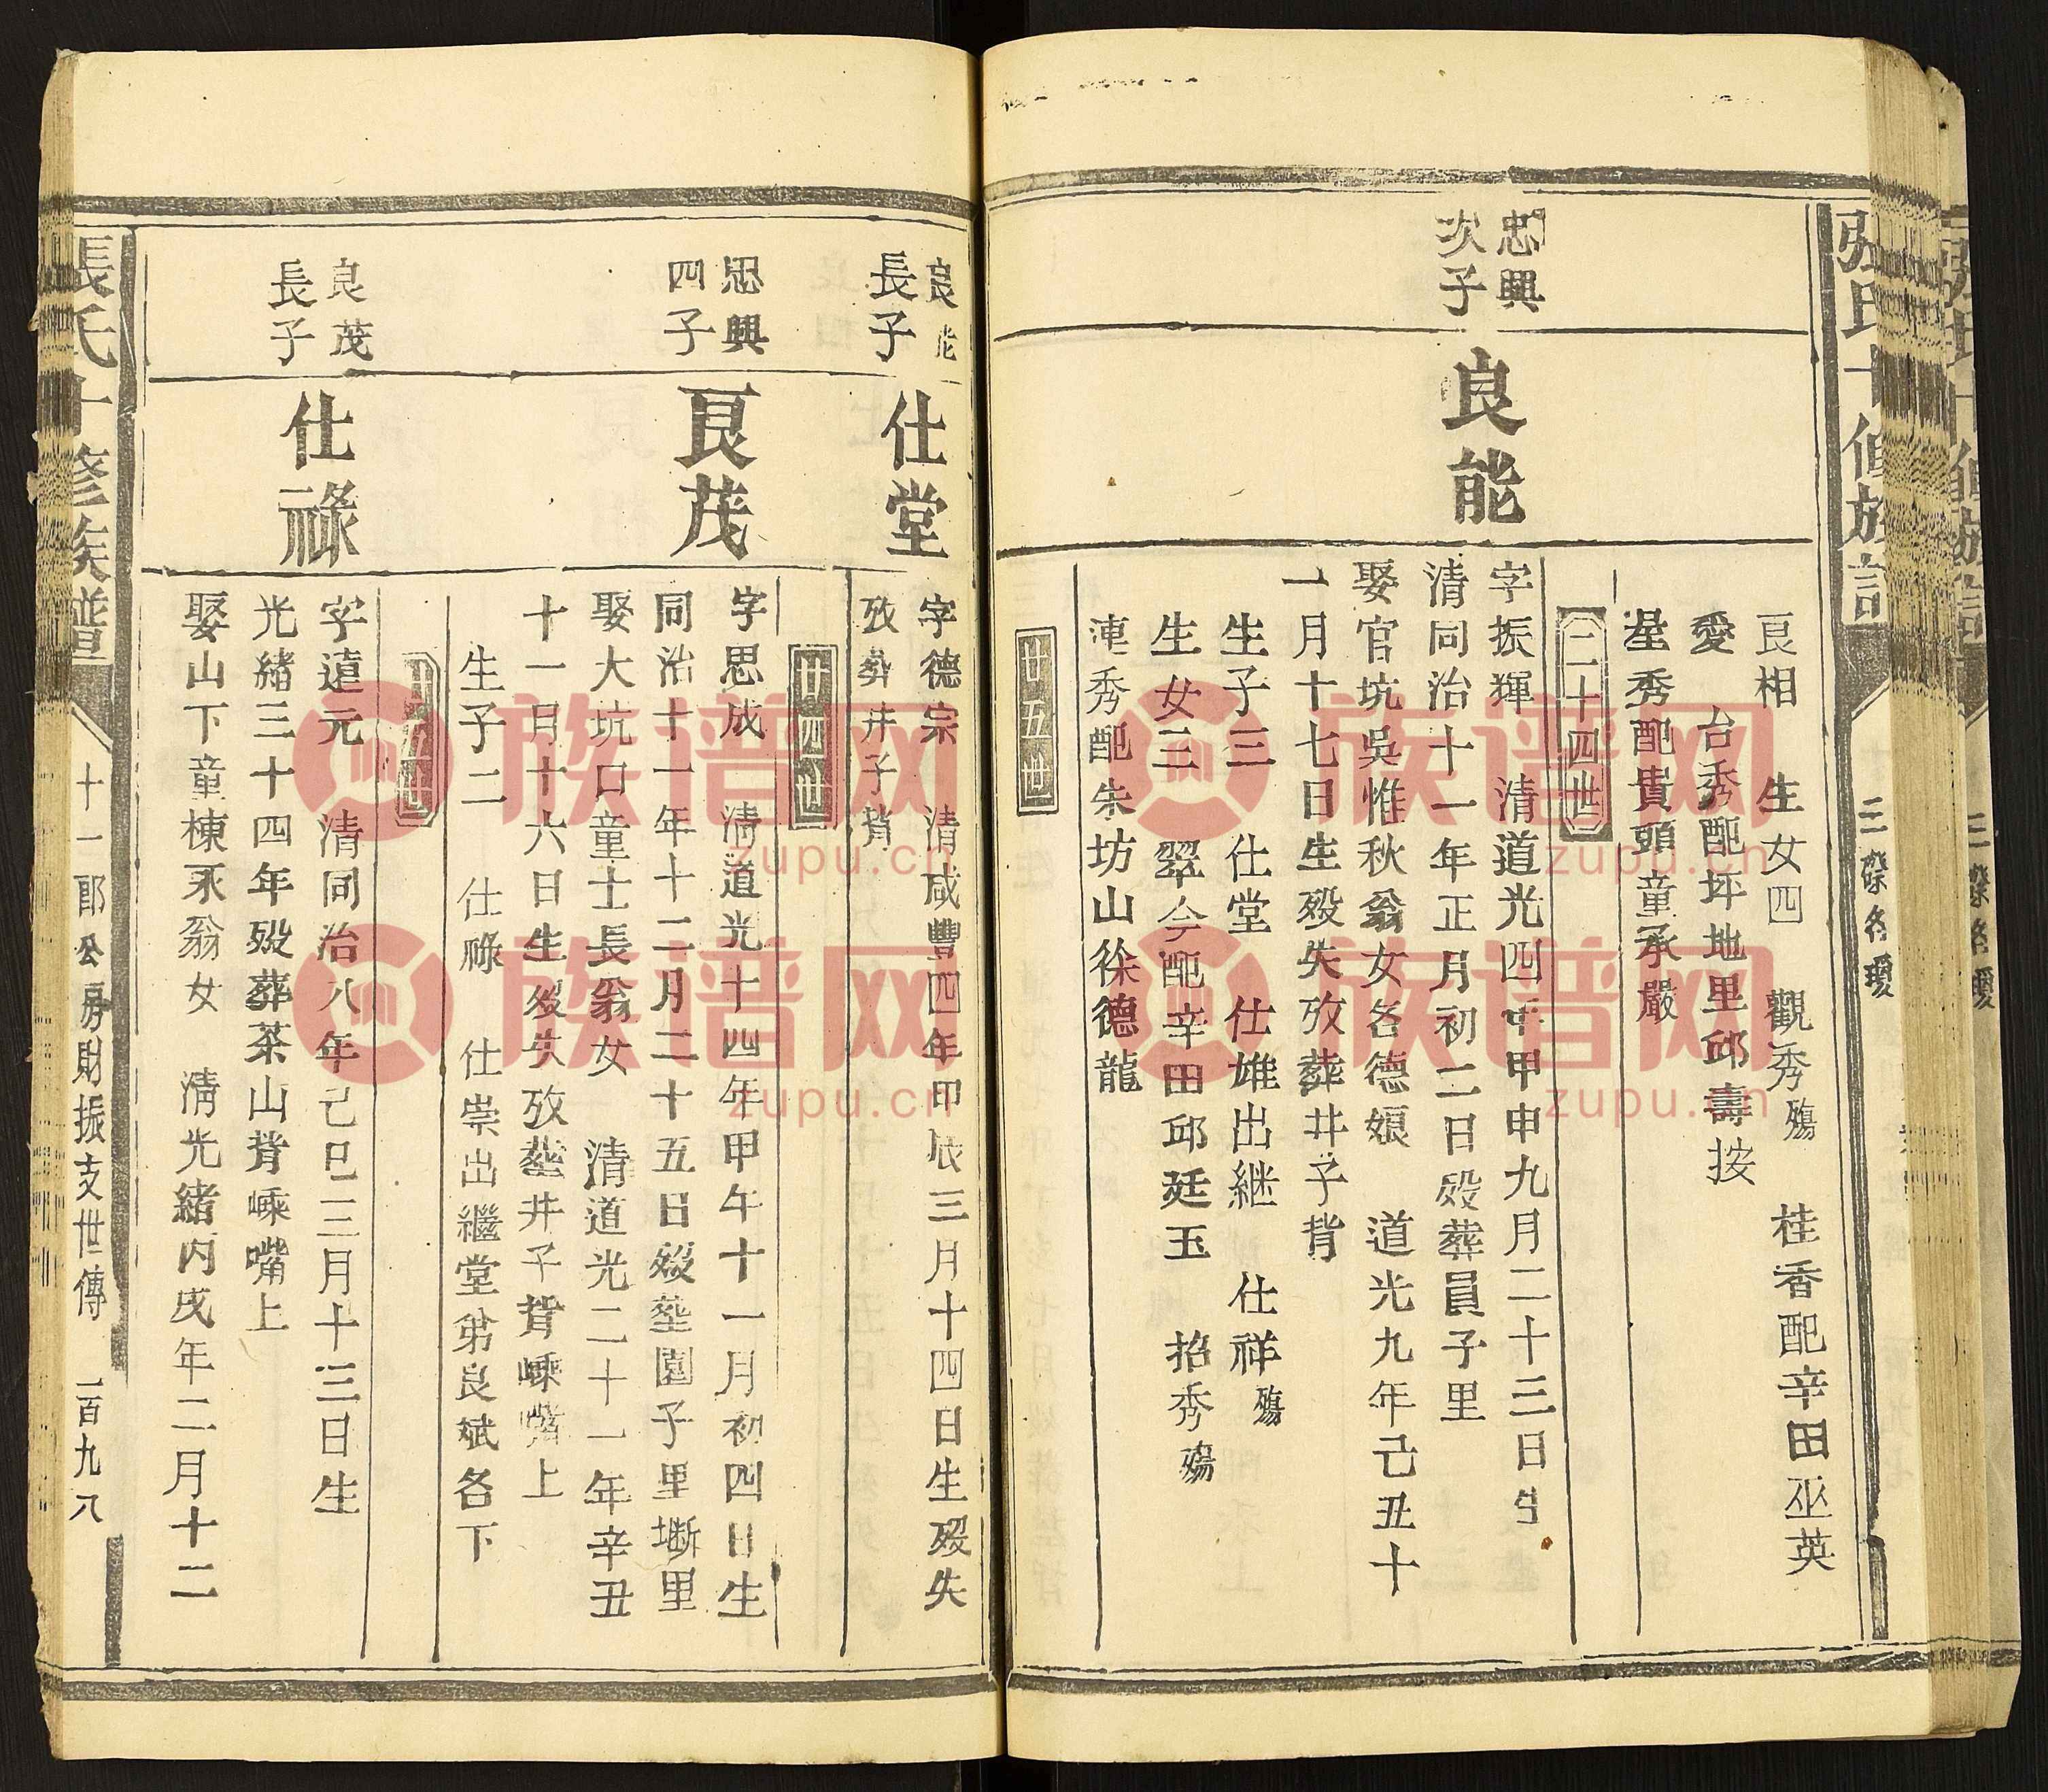 張氏十修族譜
良相 生女四 觀秀殤 桂香配辛田巫英
愛 台秀配坪地里邱壽按
星秀配貴頭童承嚴
二十四世
忠興
次子
良能
字振輝 清道光四年甲申九月二十三日生
清同治十一年正月初二日歿葬員子里
娶官坑吳惟秋翁女名德娘 道光九年己丑十
一月十七日生歿失攷葬井子背
生子三 仕堂 仕雄出継 仕祥殤
生女三 翠今配辛田邱廷玉 招秀殤
連秀配朱坊山徐德龍
廿五世
良能
長子
仕堂
字德宗 清咸豐四年甲辰三月十四日生歿失
攷葬井子背
廿四世
忠興
四子
良茂
字思成 清道光十四年甲午十一月初四日生
同治十一年十二月二十五日歿塟園子里塹里
娶大坑口童士長翁女 清道光二十一年辛丑
十一月十六日生歿失攷塟井子背嵊嘴上
生子二 仕祿 仕崇出繼堂弟良斌名下
廿五世
良茂
長子
仕祿
字遠元 清同治八年己巳三月十三日生
光緒三十四年歿葬茶山背嵊嘴上
娶山下童棟永翁女 清光緒丙戌年二月十二
張氏十修族譜
十一郎公房財振支世傳 一百九八
族谱网
zupu.cn
族谱网
zupu.cn
族谱网
zupu.cn
族谱网
zupu.cn